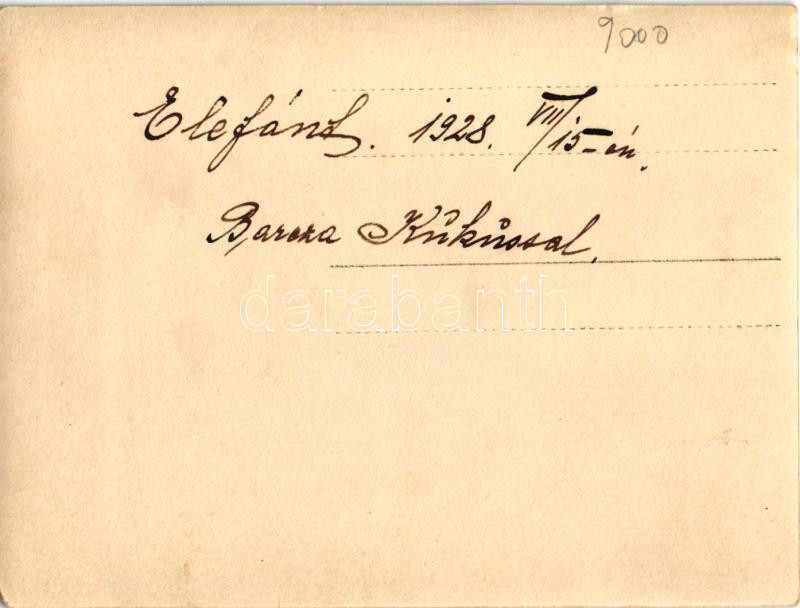 9000
Elefánt. 1928. VIII/15-én.
Barcza Kükússal.
darabanth